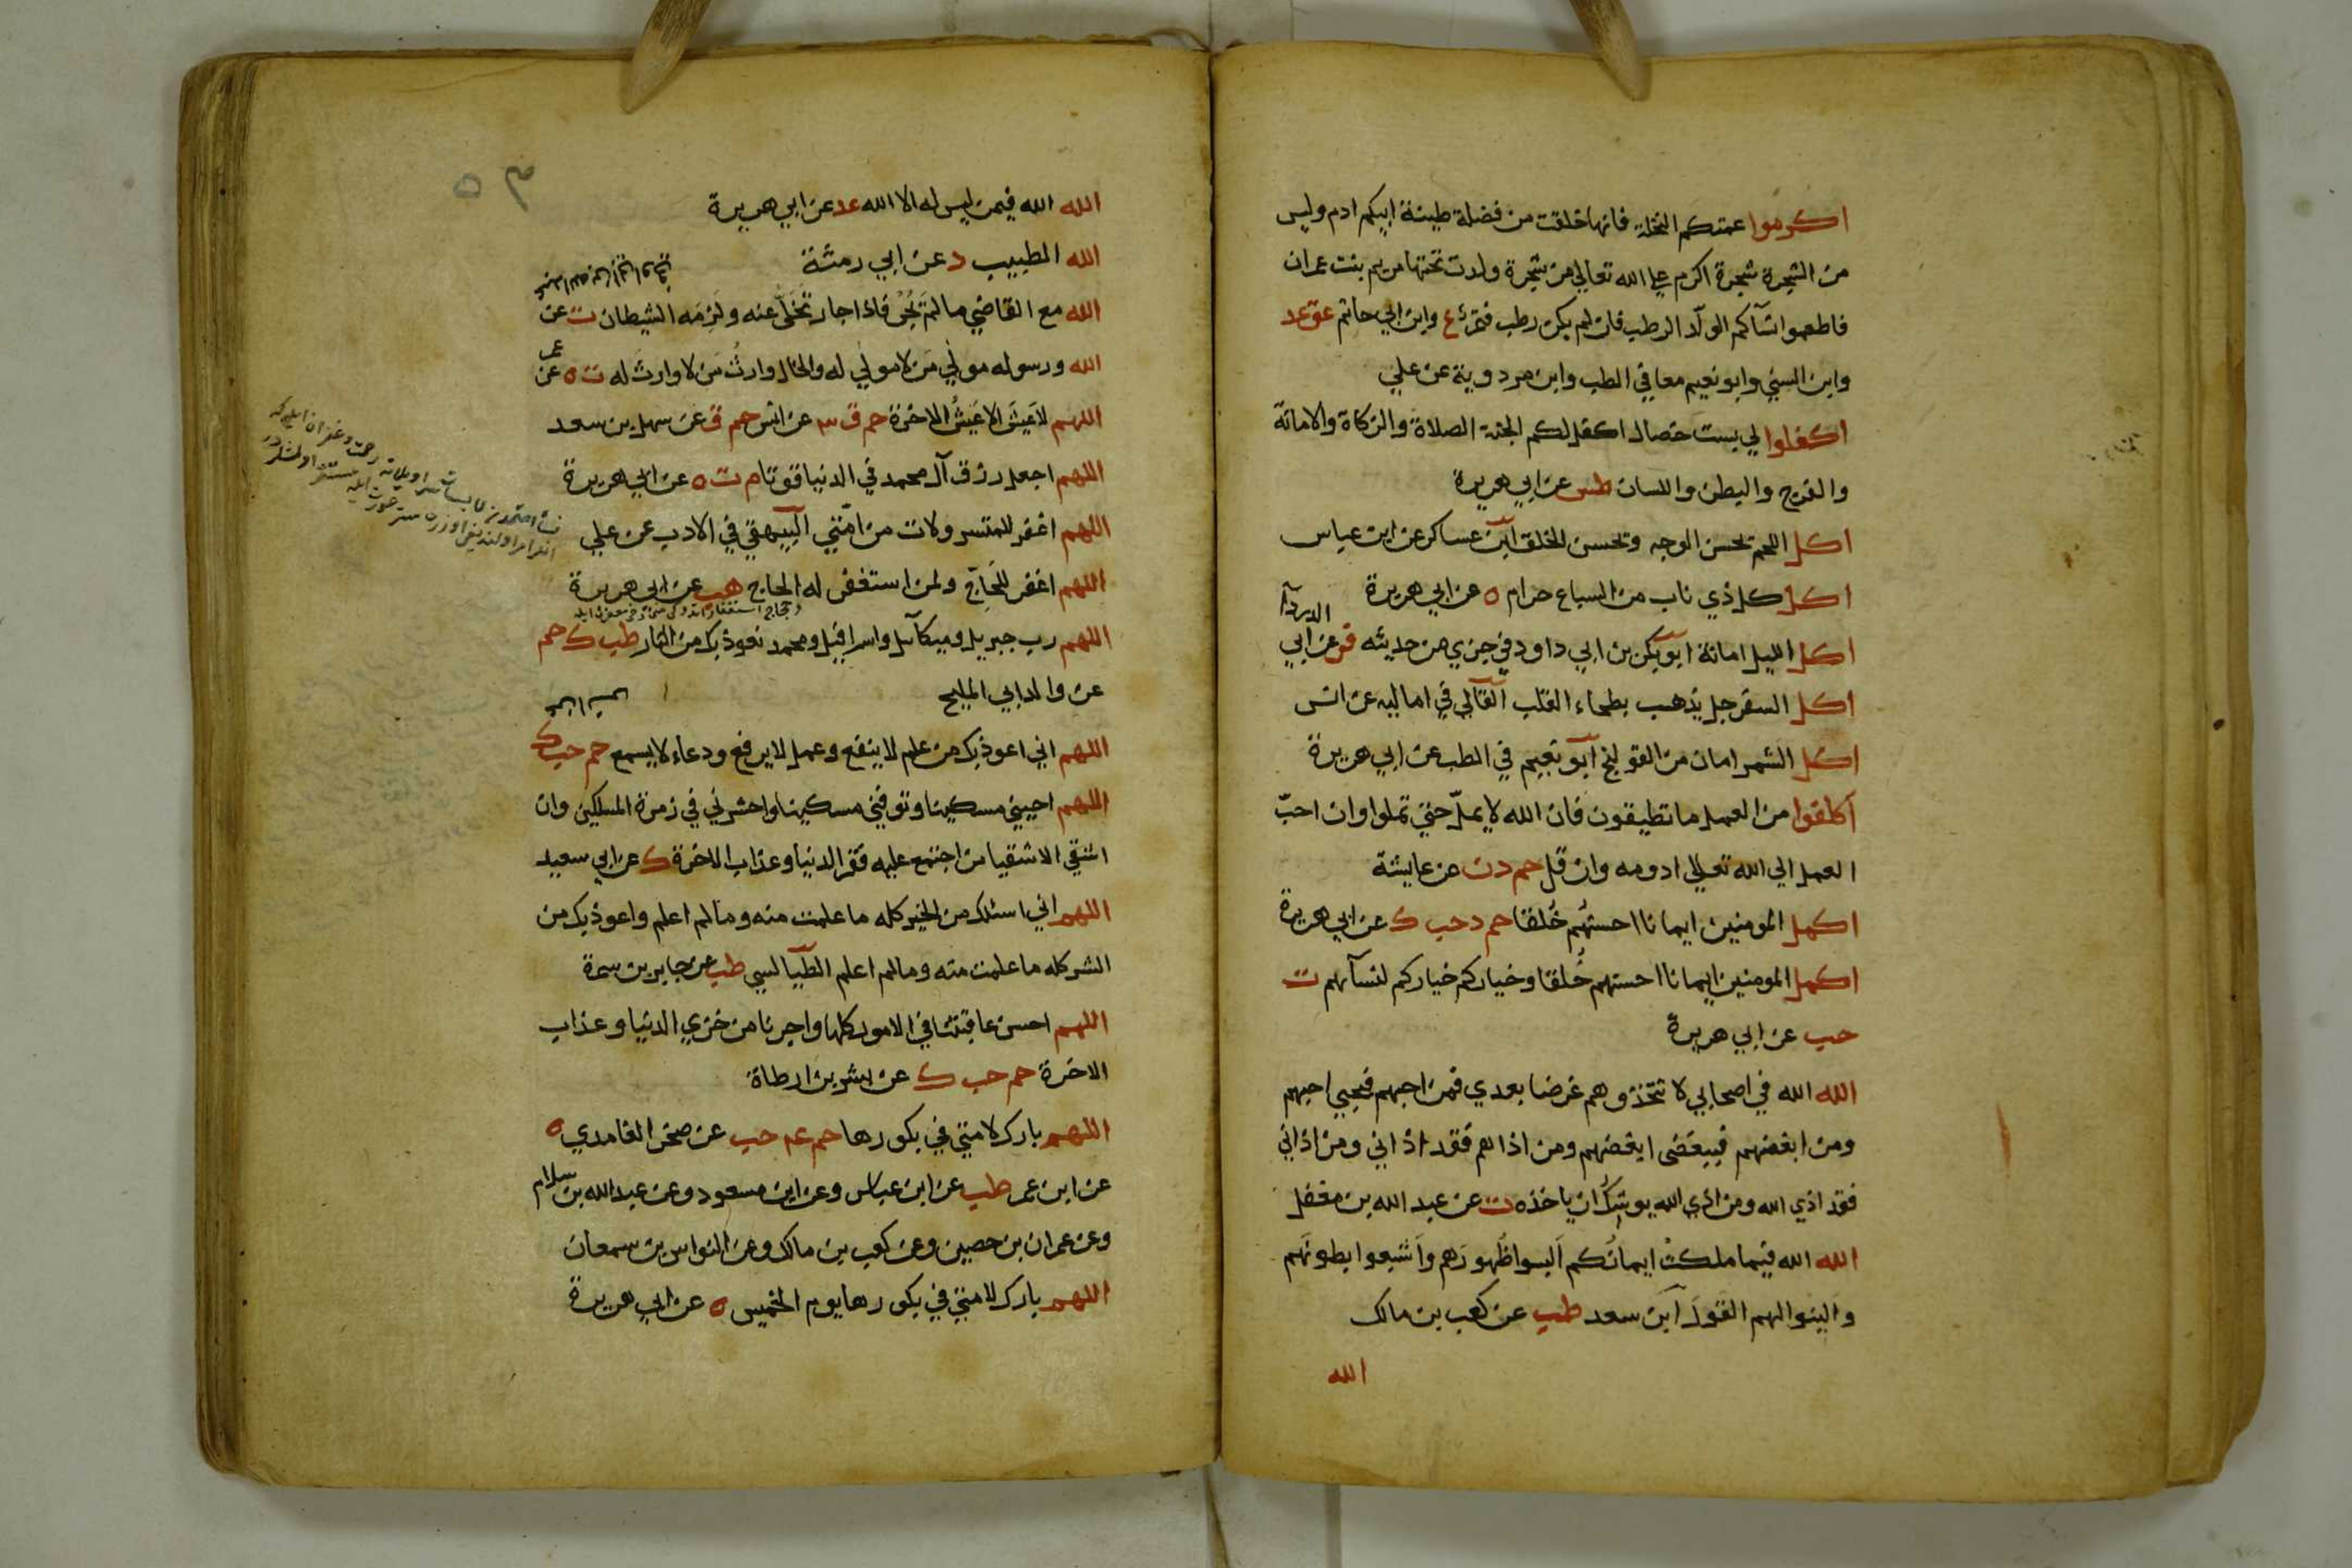 اكرموا عمتكم النخلة فانها خلقت من فضلة طينة ابيكم ادم وليس
من الشجرة شجرة اكرم علي الله تعالي من شجرة ولدت تحتها مريم بنت عمران
فاطعموا نسآكم الولّد الرطب فان لم يكن رطب فتمر ع وابن ابي حاتم عق عد
وابن السني وابو نعيم معا في الطب وابن مردوية عن علي
اكفلوا لي بست خصال اكفل لكم الجنة الصلاة والزكاة والامانة
والفرج والبطن واللسان طس عن ابي هريرة
اكل اللحم تحسن الوجه وتحسن الخلق ابن عساكر عن ابن عباس
اكل كل ذي ناب من السباع حرام ه عن ابي هريرة
اكل الليل امانة ابو بكر بن ابي داود في جزي من حديثه فر عن ابي
الدردآ
اكل السفرجل يذهب بطخاء القلب القالي في اماليه عن انس
اكل الشمر امان من القولنج ابو نعيم في الطب عن ابي هريرة
اكلفوا من العمل ما تطيقون فان الله لا يملّ حتي تملوا وان احبّ
العمل الي الله تعالي ادومه وان قل حم د ن عن عايشة
اكمل المومنين ايمانا احسنهم خُلقا حم د حب ك عن ابي هريرة
اكمل المومنين ايمانا احسنهم خُلقا وخياركم خياركم لنسآئهم ت
حب عن ابي هريرة
الله الله في اصحابي لا تتخذوهم غرضا بعدي فمن احبهم فبحبي احبهم
ومن ابغضهم فببغضي ابغضهم ومن اذاهم فقد اذاني ومن اذاني
فقد اذي الله ومن اذي الله يوشك ان ياخذه ت عن عبد الله بن مغفل
الله الله فيما ملكت ايمانُكم البسوا ظهورَهم واَشبعوا بطونَهم
والينوا لهم القولَ ابن سعد طب عن كعب بن مالك
الله
٥٣
الله الله فيمن ليس له الا الله عد عن ابي هريرة
الله الطبيب د عن ابي رمثة
الله مع القاضي ما لم يَجُر فاذا جار تَخَلَّي عنه ولَزِمَه الشيطان ت عن
الله ورسوله مولي مَن لا مولي له والخال وارثُ مَن لا وارثَ له ت ه عن
عمر
اللهم لا عَيشَ الا عَيشُ الاخرة حم ق ٣ عن انس حم ق عن سهل بن سعد
اللهم اجعل رزق آل محمد في الدنيا قوتا م ت ه عن ابي هريرة
اللهم اغفر للمتسرولات من امّتي البيهقي في الادب عن علي
اللهم اغفر للحَاجّ ولمن استغفر له الحاج هب عن ابي هريرة
اللهم رب جبريل وميكآئيل واسرافيل ومحمد نعوذ بك من النار طب ك حم
عن والد ابي المليح
اللهم اني اعوذ بك من علم لا ينفع وعمل لا يرفع ودعاء لا يسمع حم حب ك
اللهم احييني مسكينا وتوفني مسكينا واحشرني في زمرة المسكين وان
اشقي الاشقيا من اجتمع عليه فقر الدنيا وعذاب الاخرة ك عن ابي سعيد
اللهم اني اسئلك من الخير كله ما علمت منه وما لم اعلم واعوذ بك من
الشر كله ما علمت منه وما لم اعلم الطيالسي طب عن جابر بن سمرة
اللهم احسن عاقبتنا في الامور كلها واجرنا من خزي الدنيا وعذاب
الاخرة حم حب ك عن بشر بن ارطاة
اللهم بارك لامتي في بكورها حم عم حب عن صخر الغامدي ه
عن ابن عمر طب عن ابن عباس وعن ابن مسعود وعن عبد الله بن سلام
وعن عمران بن حصين وعن كعب بن مالك وعن النواس بن سمعان
اللهم بارك لامتي في بكورها يوم الخميس ه عن ابي هريرة